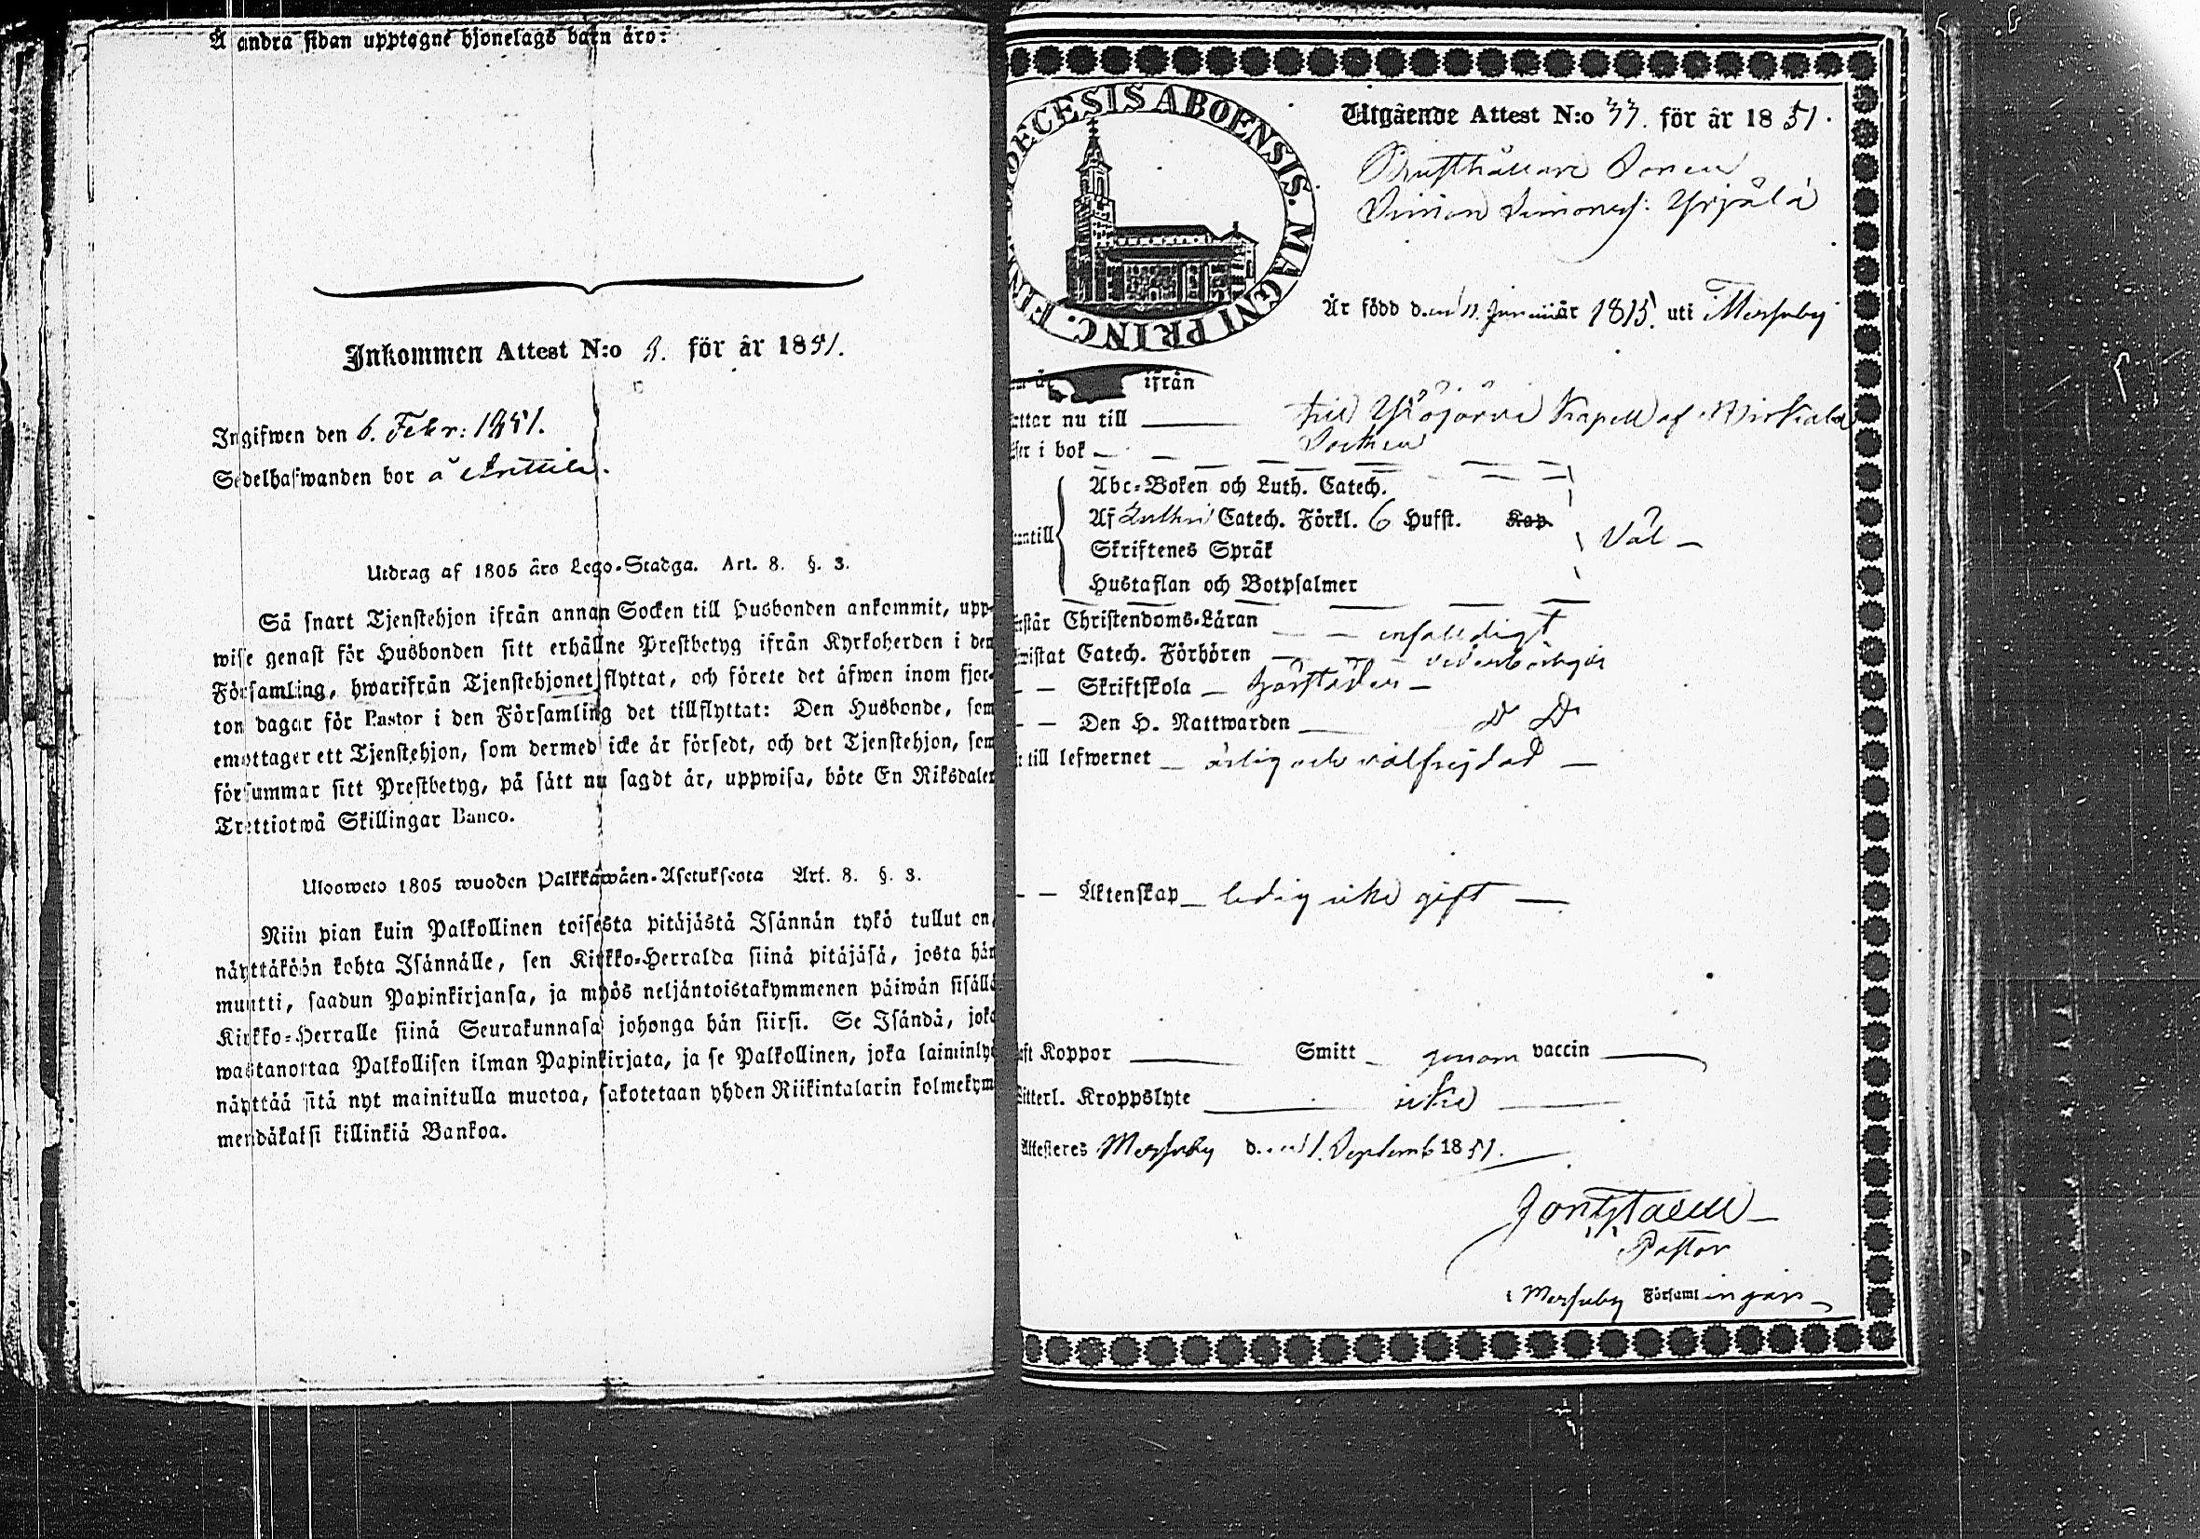 Å andra sidan upptagne hjonelags barn äro:
Inkommen Attest N:o 3. för år 1851.
Ingifwen den 6. Febr: 1851.
Sedelhafwanden bor å Anttila.
Utdrag af 1805 års Lego-Stadga. Art. 8. §. 3.
Så snart Tjenstehjon ifrån annan Socken till Husbonden ankommit, upp-
wise genast för Husbonden sitt erhållne Prestbetyg ifrån Kyrkoherden i den
Församling, hwarifrån Tjenstehjonet flyttat, och förete det äfwen inom fjor-
ton dagar för Pastor i den Församling det tillflyttat: Den Husbonde, som
emottager ett Tjenstehjon, som dermed icke är försedt, och det Tjenstehjon, som
försummar sitt Prestbetyg, på sätt nu sagdt är, uppwisa, böte En Riksdaler
Trettiotwå Skillingar Banco.
Uloswcto 1805 wuoden Palkkawäen-Asetuksesta Art. 8. §. 3.
Niin pian kuin Palkollinen toisesta pitäjästä Isännän tykö tullut on,
näyttäköön kohta Isännälle, sen Kirkko-Herralda siinä pitäjäsä, josta hän
muutti, saadun Papinkirjansa, ja myös neljäntoistakymmenen päiwän sisällä
Kirkko-Herralle siinä Seurakunnasa johonga hän siirsi. Se Isändä, joka
wastanottaa Palkollisen ilman Papinkirjata, ja se Palkollinen, joka laiminlyö
näyttää sitä nyt mainitulla muotoa, sakotetaan yhden Riikintalarin kolmekym-
mendäkaksi killinkiä Bankoa.
DIOECESIS ABOENSIS. MAGNI PRINC. FIN
Utgående Attest N:o 33. för år 1851.
Rusthållare Sonen
Simon Simonss: Yrjälä
Är född den 11. Januiär 1815. uti Merfuby
ifrån
ttar nu till till Ylöjärvi Kapell af Birkala
i bok Socken
Abc-Boken och Luth. Catech.
Af Lutheri Catech. Förkl. 6 Hufst. Kap.
ntill Wäl
Skriftenes Språk
Hustaflan och Botpsalmer
står Christendoms-Läran enfalldigt
wistat Catech. Förhören wederbörligen
Skriftskola
Den H. Nattwarden D D
till lefwernet ärlig och wälfrejdad
Äktenskap ledig icke gift
Koppor Smitt genom vaccin
itterl. Kroppslyte icke
Attesteres d. en 1. Septemb 1851.
Pastor
i Församlingen